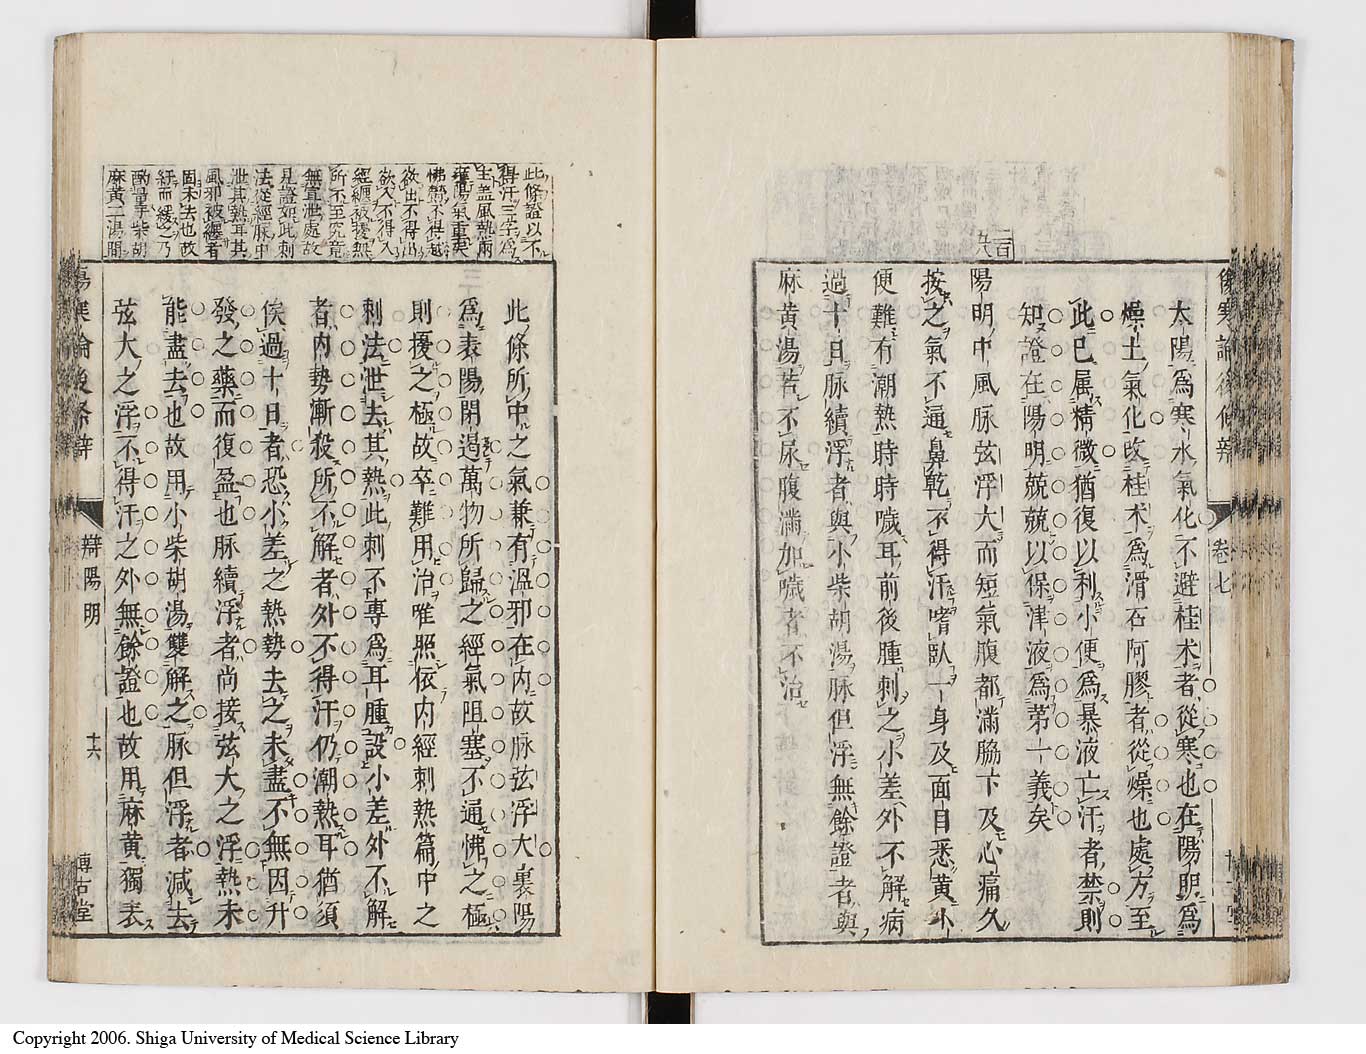 傷寒論後條辨
卷七
太陽爲寒水氣化不避桂朮者從寒也在陽明爲
燥土氣化改桂朮爲滑石阿膠者從燥也處方至
此已属精微猶復以利小便爲暴液亡汗者禁則
知證在陽明兢兢以保津液爲第一義矣
陽明中風脉弦浮大而短氣腹都滿脇下及心痛久
按之氣不通鼻乾不得汗嗜臥一身及面目悉黃小
便難有潮熱時時噦耳前後腫刺之小差外不解病
過十日脉續浮者與小柴胡湯脉但浮無餘證者與
麻黃湯若不尿腹滿加噦者不治
此條證以不
得汗三字爲
主盖風熱兩
陽氣重
怫鬱不得越
欲出不得出
欲入不得入
經纏被擾無
所不至究竟
無宣泄處故
見證如此刺
法從經脉中
泄其熱耳其
風邪被纒者
固未去也故
紆而緩之乃
酌量於柴胡
麻黃二湯間
此條所中之氣兼有溫邪在内故脉弦浮大裏陽
爲表陽閉遏萬物所歸之經氣阻塞不通怫之極
則擾之極故卒難用治唯照依内經刺熱篇中之
刺法泄去其熱此刺不專爲耳腫設小差外不解
者内勢漸殺所不解者外不得汗仍潮熱耳猶須
俟過十日者恐小差之熱勢去之未盡不無因升
發之藥而復盈也脉續浮者尚接弦大之浮熱未
能盡去也故用小柴胡湯雙解之脉但浮者減去
弦大之浮不得汗之外無餘證也故用麻黃獨表
傷寒論後條辨
辯陽明
十六
博古堂
Copyright 2006. Shiga University of Medical Science Library